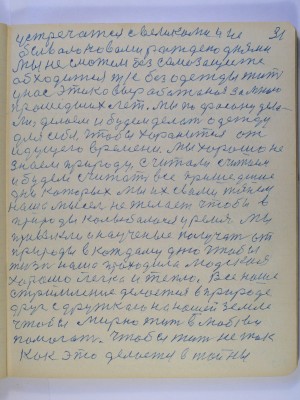 31
встречатся с великами и не
бывало новами рождено днями
Мы не сможем без самозащите
обходится т/к без одежды жить
у нас этого выработаная за много
прошедших лет. Мы по
ли, делаем и будем делат одежду
для себя, чтобы хоранится от
идущего времени. Мы хорошо не
знаем природу, считали считаем
и будем считать все пришедшие
дни которых мы их своими
наша мысел не желает чтобы в
природы колыбалося время. Мы
привыкли и научены получат от
природы в каждому дню чтобы
жизн наша проходила людская
хорошо легко и тепло. Все наше
стримление делается в природе
друг с дружкаю на нашей земле
чтобы мирно жит и
помогат. Чтобы жит не так
как это делается в тайны